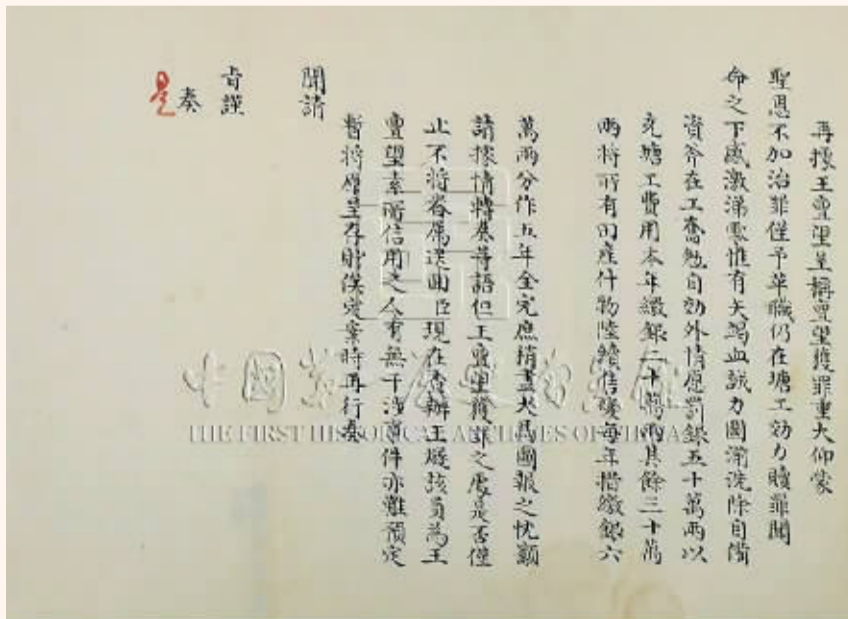 再據王亶望呈稱亶望獲罪重大仰蒙
聖恩不加治罪僅予革職仍在塘工効力贖罪聞
命之下感激涕零惟有矢竭血誠力圖湔洗除自備
資斧在工奮勉自効外情愿罰銀五十萬兩以
充塘工費用本年繳銀二十萬兩其餘三十萬
兩將所有田產什物陸續售變每年措繳銀六
萬兩分作五年全完庶稍盡犬馬圖報之忱籲
請據情轉奏等語但王亶望獲罪之處是否僅
止不將眷屬送回臣現在查辦王燧該員為王
亶望素所信用之人有無干涉事件亦難預定
暫將原呈存貯俟定案時再行奏
聞請
旨謹
奏
是
中國第一歷史檔案館
THE FIRST HISTORICAL ARCHIVES OF CHINA